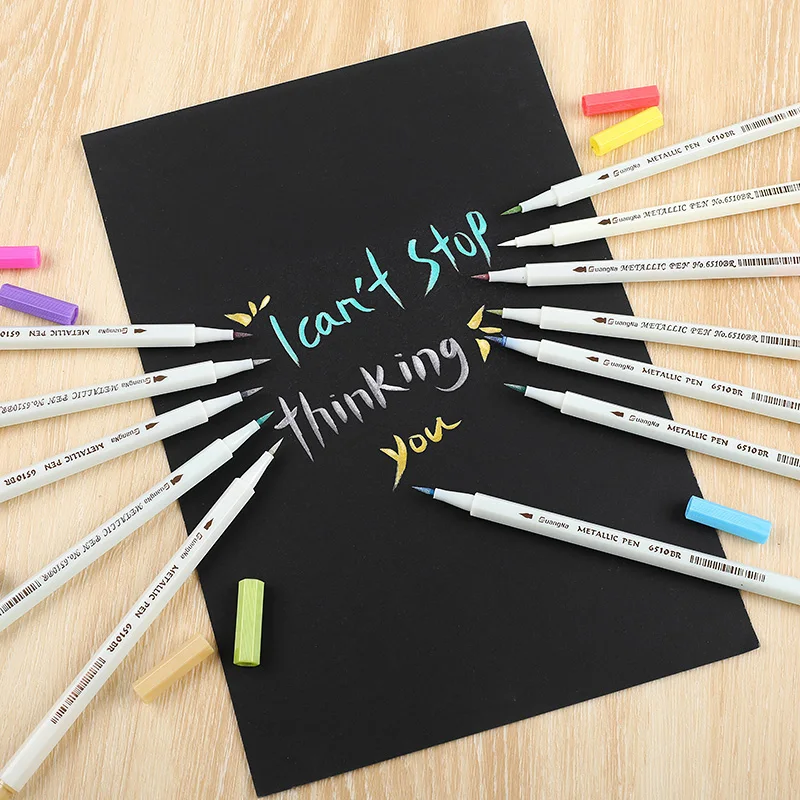 I can't Stop
thinking
you
GuangNa METALLIC PEN 6510BR
GuangNa METALLIC PEN No.6510BR
GuangNa METALLIC PEN No.6510BR
GuangNa METALLIC PEN No.6510BR
GuangNa METALLIC PEN 6510BR
GuangNa METALLIC PEN 6510BR
GuangNa METALLIC PEN 6510BR
GuangNa METALLIC PEN 6510
GuangNa METALLIC PEN No.6510BR
GuangNa METALLIC PEN 6510BR
GuangNa METALLIC PEN No.6510BR
GuangNa METALLIC PEN 6510BR